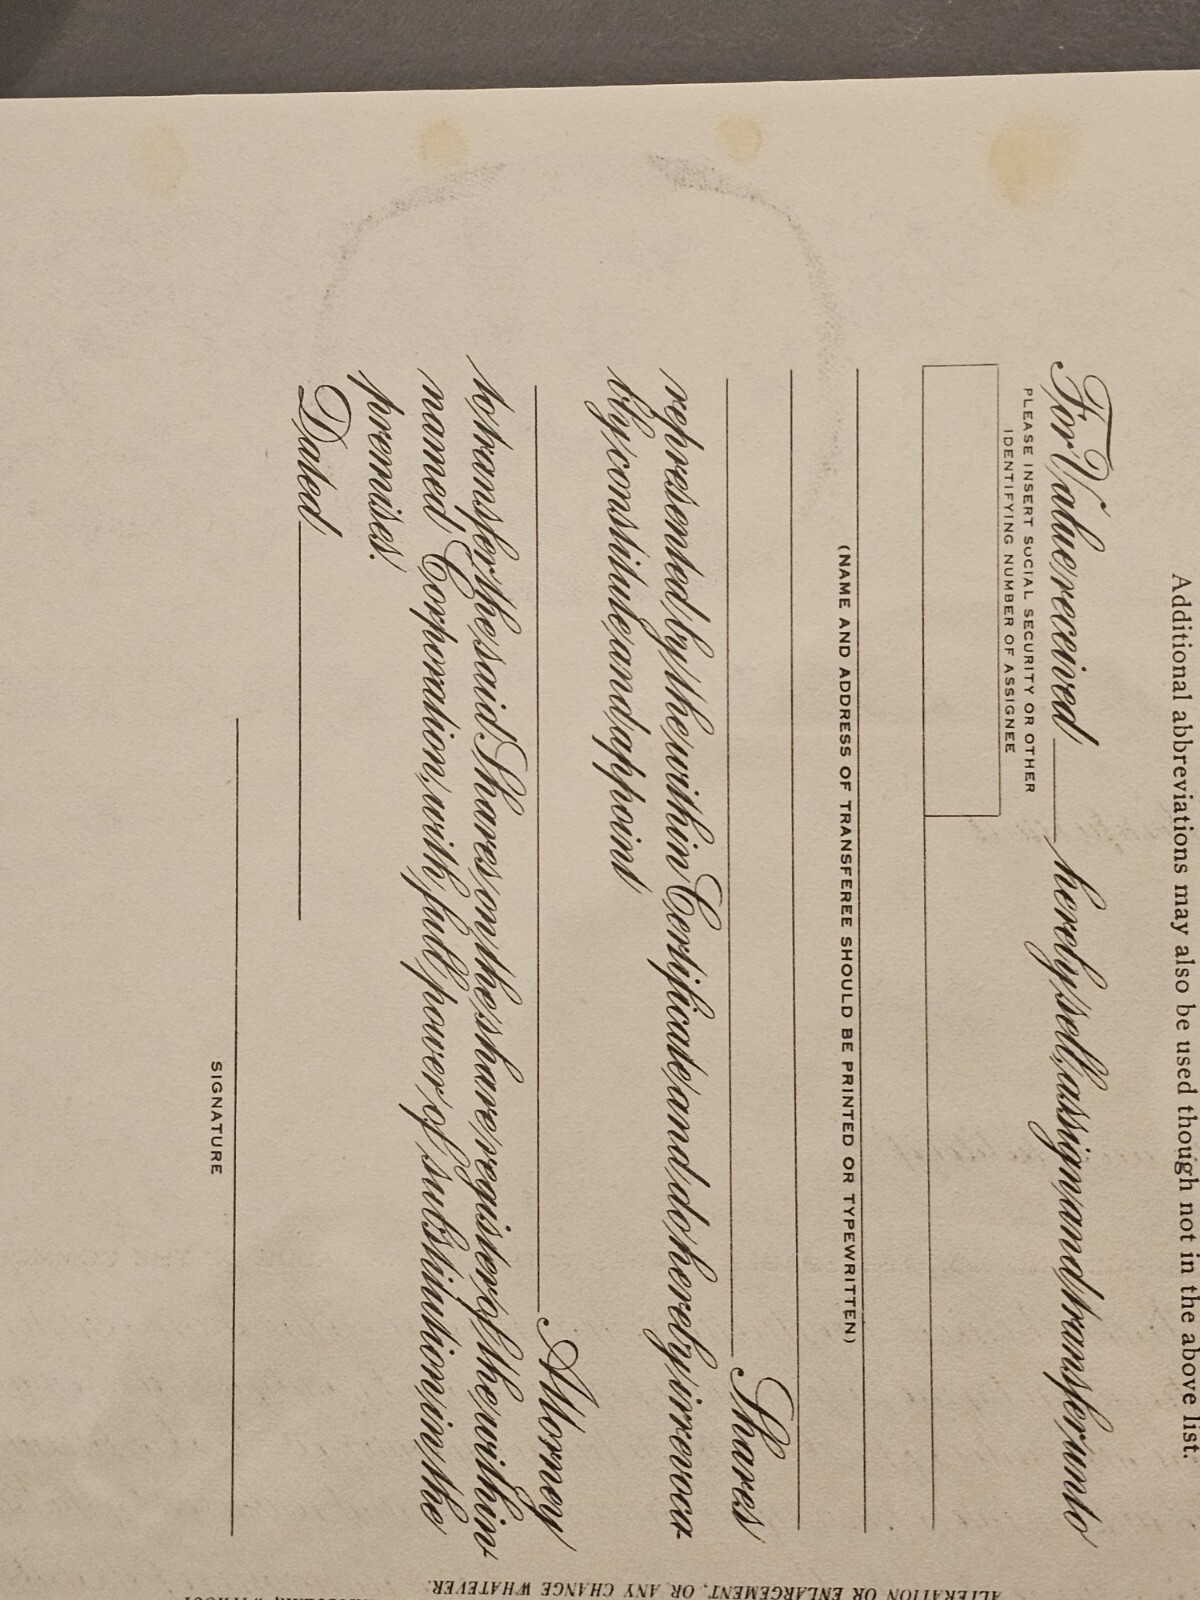 Additional abbreviations may also be used though not in the above list.
For Value received hereby sell, assign and transfer unto
PLEASE INSERT SOCIAL SECURITY OR OTHER
IDENTIFYING NUMBER OF ASSIGNEE
(NAME AND ADDRESS OF TRANSFEREE SHOULD BE PRINTED OR TYPEWRITTEN)
Shares
represented by the within Certificate and do hereby irrevoca-
bly constitute and appoint
Attorney
to transfer the said Shares on the share register of the within
named Corporation, with full power of substitution in the
premises.
Dated
SIGNATURE
ALTERATION OR ENLARGEMENT, OR ANY CHANGE WHATEVER.